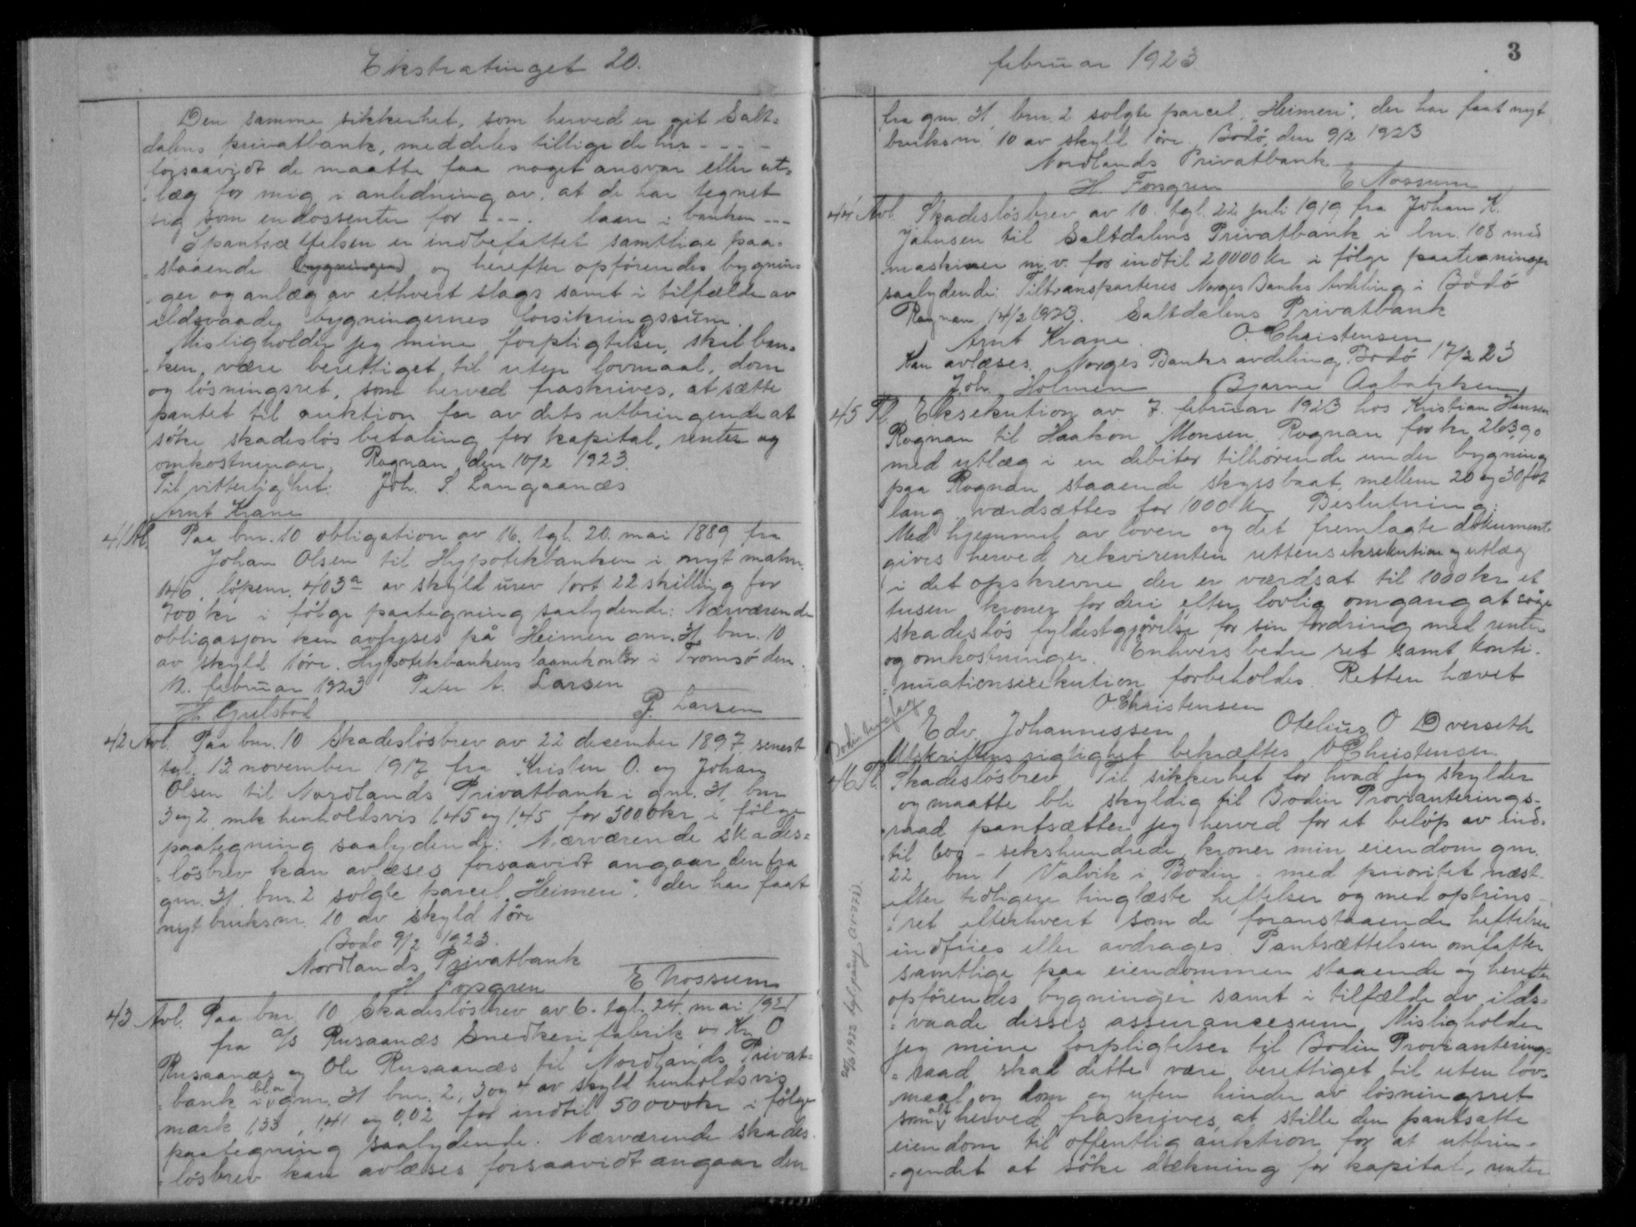 Ekstratinget 20.
Den samme sikkerhet, som herved er git Salt-
dalens privatbank, meddeles tillige de hrr - - - -
forsaavidt de maatte faa noget ansvar eller ut-
læg for mig i anledning av, at de har tegnet
sig som endossenter for - - - . laan i banken - - -
I pantsættelsen er indbefattet samtlige paa-
staaende bygninger og herefter opförendes bygnin-
ger og anlæg av ethvert slags samt i tilfælde av
ildsvaade bygningernes forsikringssum.
Misligholder jeg mine forpligtelser, skal ban-
ken være berettiget til uten lovmaal, dom
og lösningsret, som herved fraskrives, at sætte
pantet til auktion for av dets utbringende at
söke skadeslös betaling for kapital, renter og
omkostninger. Rognan den 10/2 1923.
Til vitterlighet: Joh. S. Langaanæs
Arnt Krane
41 Avl. Paa bnr. 10 obligation av 16. tgl. 20. mai 1889 fra
Johan Olsen til Hypotekbanken i nyt matr.
146, löpenr. 403a av skyld urev 1 ort 22 skilling for
700 kr i följe paategning saalydende: Nærværende
obligasjon kan avlyses på Heimen gnr. 31 bnr. 10
av skyld 1 öre. Hypotekbankens laanekontor i Tromsö den
12. februar 1923 Peter A. Larsen
H Grelstad P. Larsen
42 Avl. Paa bnr. 10 Skadeslösbrev av 22 december 1897, senest
tgl. 13 november 1917 fra Kristen O. og Johan
Olsen til Nordlands Privatbank i gnr. 31, bnr
3 og 2 mk henholdsvis 1,45 og 1,45 for 5000 kr i fölge
paategning saalydende: Nærværende skades-
lösbrev kan avlæses forsaavidt angaar den fra
gnr. 31 bnr. 2 solgte parcel "Heimen": der har faat
nyt bruksnr. 10 av skyld 1 öre
Bodö 9/2 1923.
Nordlands Privatbank
H Forsgren E Nossum
43 Avl. Paa bnr. 10 Skadeslösbrev av 6. tgl. 24. mai 1921
fra A/S Rusaanæs Snedkerifabrik v. Kr. O
Rusaanæs og Ole Rusaanæs til Nordlands Privat-
bank i bl.a. gnr. 31 bnr. 2, 3 og 4 av skyld henholdsvis
mark 1,33, 1,41 og 0,02 for indtil 50000 kr i fölge
paategning saalydende. Nærværende skades-
lösbrev kan avlæses forsaavidt angaar den
februar 1923
3
fra gnr. 31 bnr. 2 solgte parcel "Heimen": der har faat nyt
bruksnr 10 av skyld 1 öre. Bodö, den 9/2 1923
Nordlands Privatbank
H Forsgren E Nossum
44 Avl. Skadeslösbrev av 10. tgl. 22 juli 1919 fra Johan K.
Johnsen til Saltdalens Privatbank i bnr. 108 med
maskiner m.v. for indtil 20000 kr i fölge paategninger
saalydende: Tiltransporteres Norges Banks Avdeling i Bodö
Rognan, 14/2 1923. Saltdalens Privatbank
Arnt Krane. O. Christensen
Kan avlæses. Norges Banks avdeling, Bodö 17/2 23
Joh. Holmen Bjarne Aabakken
45 Tl. Eksekution av 7. februar 1923 hos Kristian Hansen
Rognan til Haakon Monsen, Rognan for kr. 263,90
med utlæg i en debitor tilhörende under bygning
paa Rognan staaende skyssbaat mellem 20 og 30 fot
lang værdsættes for 1000 kr. Beslutning:
Med hjemmel av loven og det fremlagte dokument
gives herved rekvirenten rettens eksekution og utlæg
i det opskrevne der er værdsat til 1000 kr et
tusen kroner for deri efter lovlig omgang at söge
skadeslös fyldestgjörelse for sin fordring med renter
og omkostninger. Enhvers bedre ret samt konti-
nuationsexekution forbeholdes. Retten hævet
O Christensen
Edv. Johannessen Otelius O Dverseth
Utskriftens rigtighet bekræftes O Christensen
46 Tl. Skadeslösbrev Til sikkerhet for hvad jeg skylder
og maatte bli skyldig til Bodin Provianterings-
raad pantsætter jeg herved for et belöp av ind-
til 600 - sekshundrede kroner min eiendom gnr.
22 bnr 1 Valvik i Bodin med prioritet næst
efter tidligere tinglæste heftelser og med optrins-
ret efterhvert som de foranstaaende heftelser
indfries eller avdrages. Pantsættelsen omfatter
samtlige paa eiendommen staaende og herefter
opförendes bygninger samt i tilfælde av ilds-
vaade disses assurancesum. Misligholder
jeg mine forpligtelser til Bodin Provianterings-
raad skal dette være berettiget til uten lov-
maal og dom og uten hinder av lösningsret
som alt herved fraskrives, at stille den pantsatte
eiendom til offentlig auktion for at utbrin-
gendet at söke dækning for kapital, renter